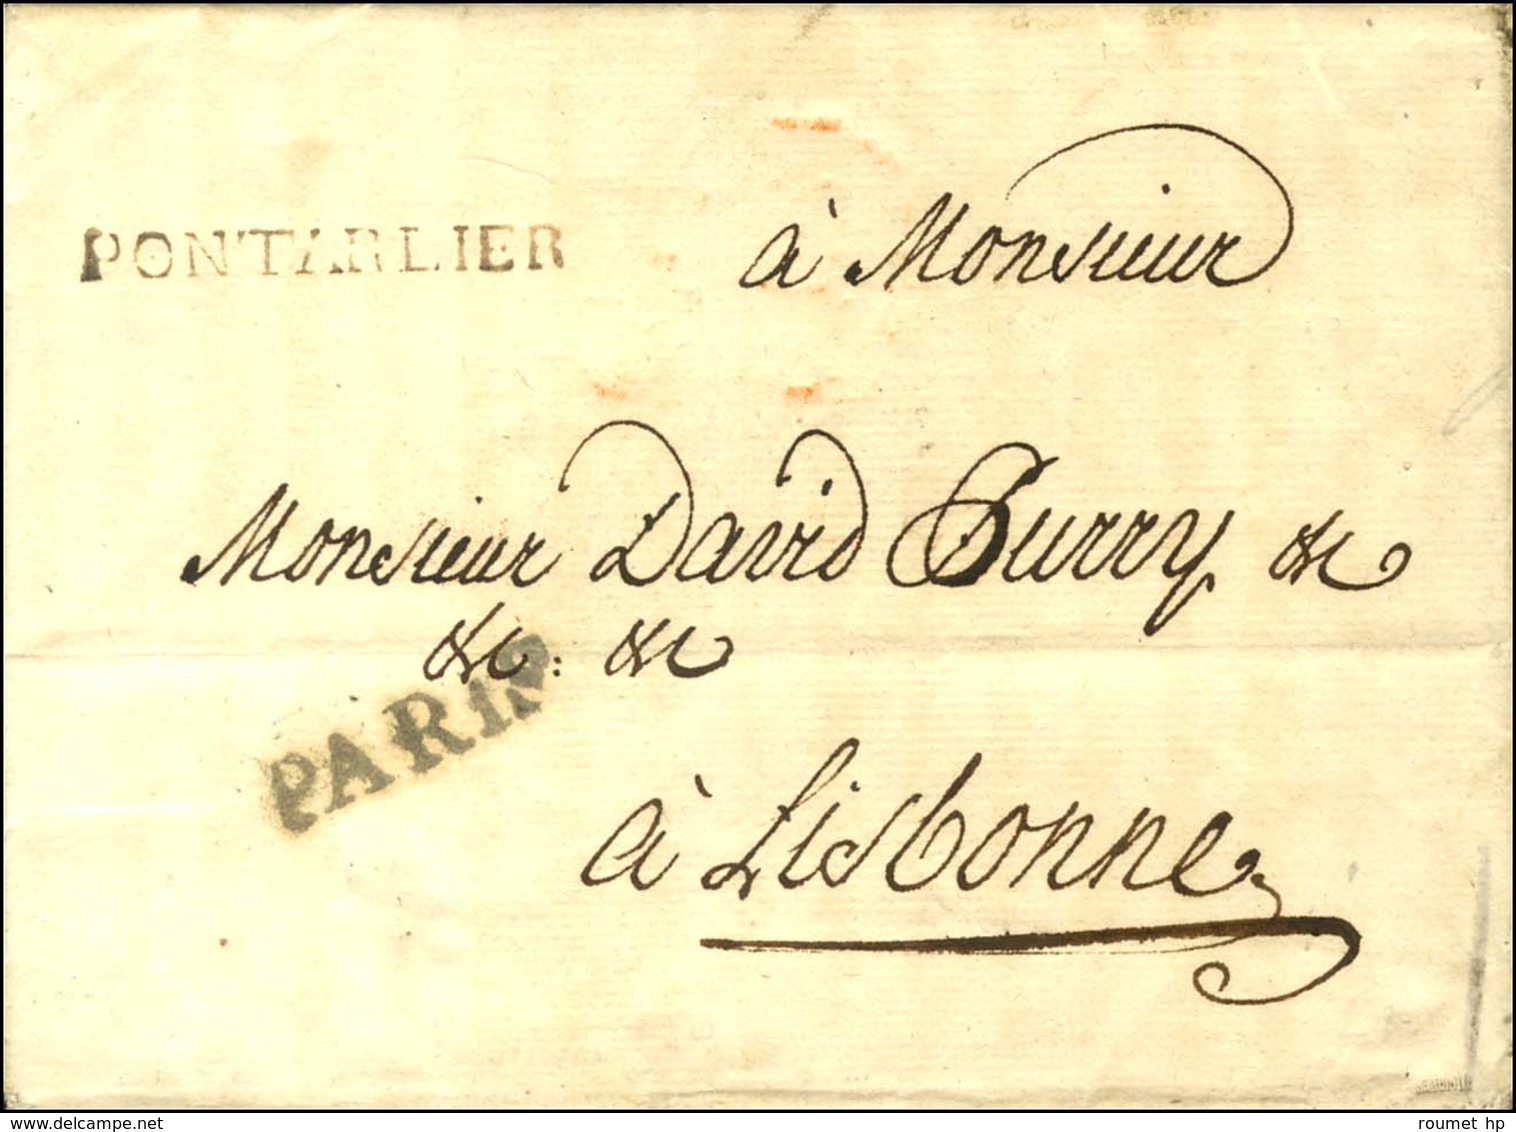 PONTARLIER
à Monsieur
Monsieur David Purry &c
&c: &c
PARIS
à Lisbonne
delcampe.net
roumet hp